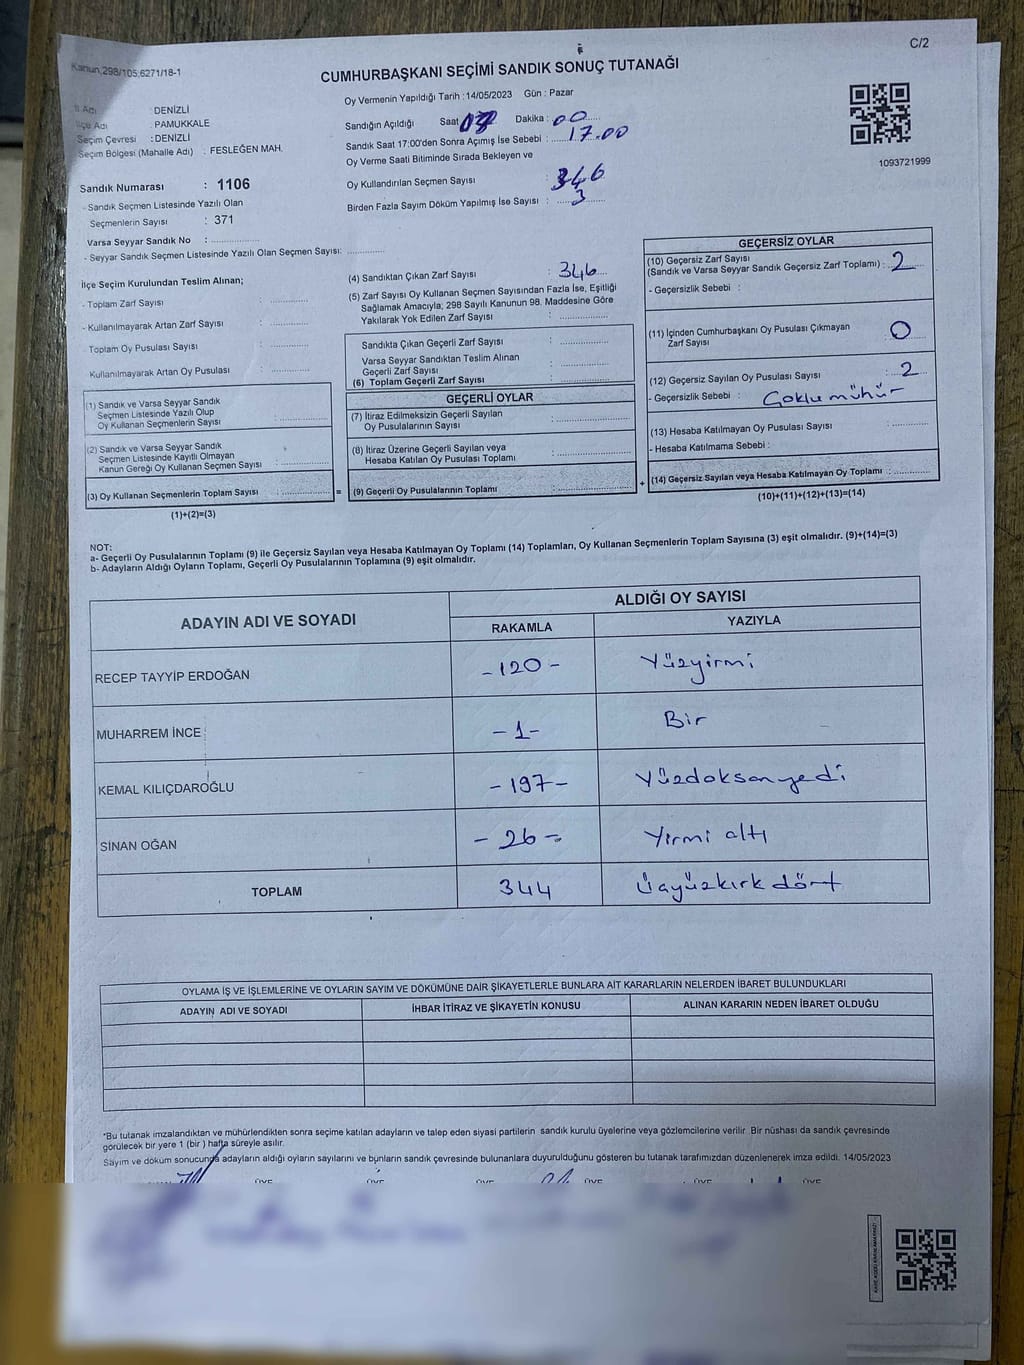 C/2
Kanun,298/105;6271/18-1
CUMHURBAŞKANI SEÇİMİ SANDIK SONUÇ TUTANAĞI
İl Adı : DENİZLİ
İlçe Adı : PAMUKKALE
Seçim Çevresi : DENİZLİ
Seçim Bölgesi (Mahalle Adı) : FESLEĞEN MAH.
Oy Vermenin Yapıldığı Tarih : 14/05/2023 Gün : Pazar
Sandığın Açıldığı Saat Dakika : 00
Sandık Saat 17:00'den Sonra Açımış İse Sebebi : 17.00
Oy Verme Saati Bitiminde Sırada Bekleyen ve
Oy Kullandırılan Seçmen Sayısı : 346
Birden Fazla Sayım Döküm Yapılmış İse Sayısı : 3
1093721999
Sandık Numarası : 1106
- Sandık Seçmen Listesinde Yazılı Olan
Seçmenlerin Sayısı : 371
Varsa Seyyar Sandık No :
- Seyyar Sandık Seçmen Listesinde Yazılı Olan Seçmen Sayısı:
İlçe Seçim Kurulundan Teslim Alınan;
- Toplam Zarf Sayısı :
- Kullanılmayarak Artan Zarf Sayısı :
- Toplam Oy Pusulası Sayısı :
Kullanılmayarak Artan Oy Pusulası :
(1) Sandık ve Varsa Seyyar Sandık
Seçmen Listesinde Yazılı Olup
Oy Kullanan Seçmenlerin Sayısı :
(2) Sandık ve Varsa Seyyar Sandık
Seçmen Listesinde Kayıtlı Olmayan
Kanun Gereği Oy Kullanan Seçmen Sayısı :
(3) Oy Kullanan Seçmenlerin Toplam Sayısı :
(1)+(2)=(3)
=
(4) Sandıktan Çıkan Zarf Sayısı : 346
(5) Zarf Sayısı Oy Kullanan Seçmen Sayısından Fazla İse, Eşitliği
Sağlamak Amacıyla; 298 Sayılı Kanunun 98. Maddesine Göre
Yakılarak Yok Edilen Zarf Sayısı :
Sandıkta Çıkan Geçerli Zarf Sayısı :
Varsa Seyyar Sandıktan Teslim Alınan
Geçerli Zarf Sayısı :
(6) Toplam Geçerli Zarf Sayısı :
GEÇERLİ OYLAR
(7) İtiraz Edilmeksizin Geçerli Sayılan
Oy Pusulalarının Sayısı :
(8) İtiraz Üzerine Geçerli Sayılan veya
Hesaba Katılan Oy Pusulası Toplamı :
(9) Geçerli Oy Pusulalarının Toplamı :
+
GEÇERSİZ OYLAR
(10) Geçersiz Zarf Sayısı
(Sandık ve Varsa Seyyar Sandık Geçersiz Zarf Toplamı) : 2
- Geçersizlik Sebebi :
(11) İçinden Cumhurbaşkanı Oy Pusulası Çıkmayan
Zarf Sayısı : 0
(12) Geçersiz Sayılan Oy Pusulası Sayısı : 2
- Geçersizlik Sebebi : Çoklu mühür
(13) Hesaba Katılmayan Oy Pusulası Sayısı :
- Hesaba Katılmama Sebebi :
(14) Geçersiz Sayılan veya Hesaba Katılmayan Oy Toplamı :
(10)+(11)+(12)+(13)=(14)
NOT:
a- Geçerli Oy Pusulalarının Toplamı (9) ile Geçersiz Sayılan veya Hesaba Katılmayan Oy Toplamı (14) Toplamları, Oy Kullanan Seçmenlerin Toplam Sayısına (3) eşit olmalıdır. (9)+(14)=(3)
b- Adayların Aldığı Oyların Toplamı, Geçerli Oy Pusulalarının Toplamına (9) eşit olmalıdır.
ADAYIN ADI VE SOYADI
ALDIĞI OY SAYISI
RAKAMLA YAZIYLA
RECEP TAYYİP ERDOĞAN -120- Yüzyirmi
MUHARREM İNCE -1- Bir
KEMAL KILIÇDAROĞLU -197- Yüzdoksanyedi
SİNAN OĞAN -26- Yirmi altı
TOPLAM 344 Üçyüzkırk dört
OYLAMA İŞ VE İŞLEMLERİNE VE OYLARIN SAYIM VE DÖKÜMÜNE DAİR ŞİKAYETLERLE BUNLARA AİT KARARLARIN NELERDEN İBARET BULUNDUKLARI
ADAYIN ADI VE SOYADI İHBAR İTİRAZ VE ŞİKAYETİN KONUSU ALINAN KARARIN NEDEN İBARET OLDUĞU
*Bu tutanak imzalandıktan ve mühürlendikten sonra seçime katılan adayların ve talep eden siyasi partilerin sandık kurulu üyelerine veya gözlemcilerine verilir. Bir nüshası da sandık çevresinde
görülecek bir yere 1 (bir ) hafta süreyle asılır.
Sayım ve döküm sonucunda adayların aldığı oyların sayılarını ve bunların sandık çevresinde bulunanlara duyurulduğunu gösteren bu tutanak tarafımızdan düzenlenerek imza edildi. 14/05/2023
ÜYE ÜYE ÜYE ÜYE ÜYE ÜYE